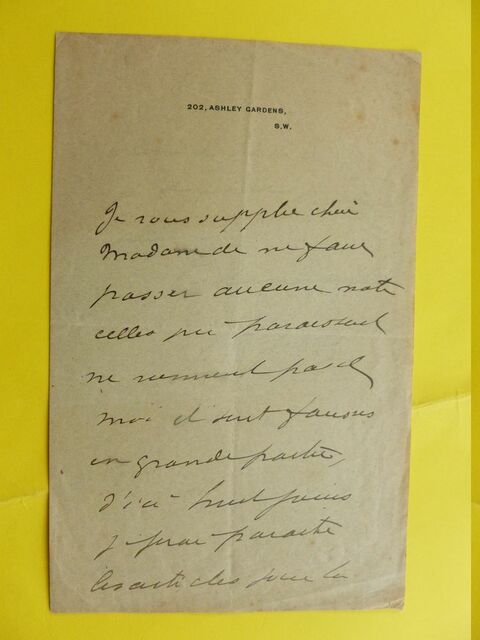 202, ASHLEY GARDENS,
S.W.
Je vous supplie chère
Madame de ne faire
passer aucune note
celles qui paraissent
ne viennent pas de
moi et sont fausses
en grande partie,
d'ici huit jours
je ferai paraître
les articles pour la